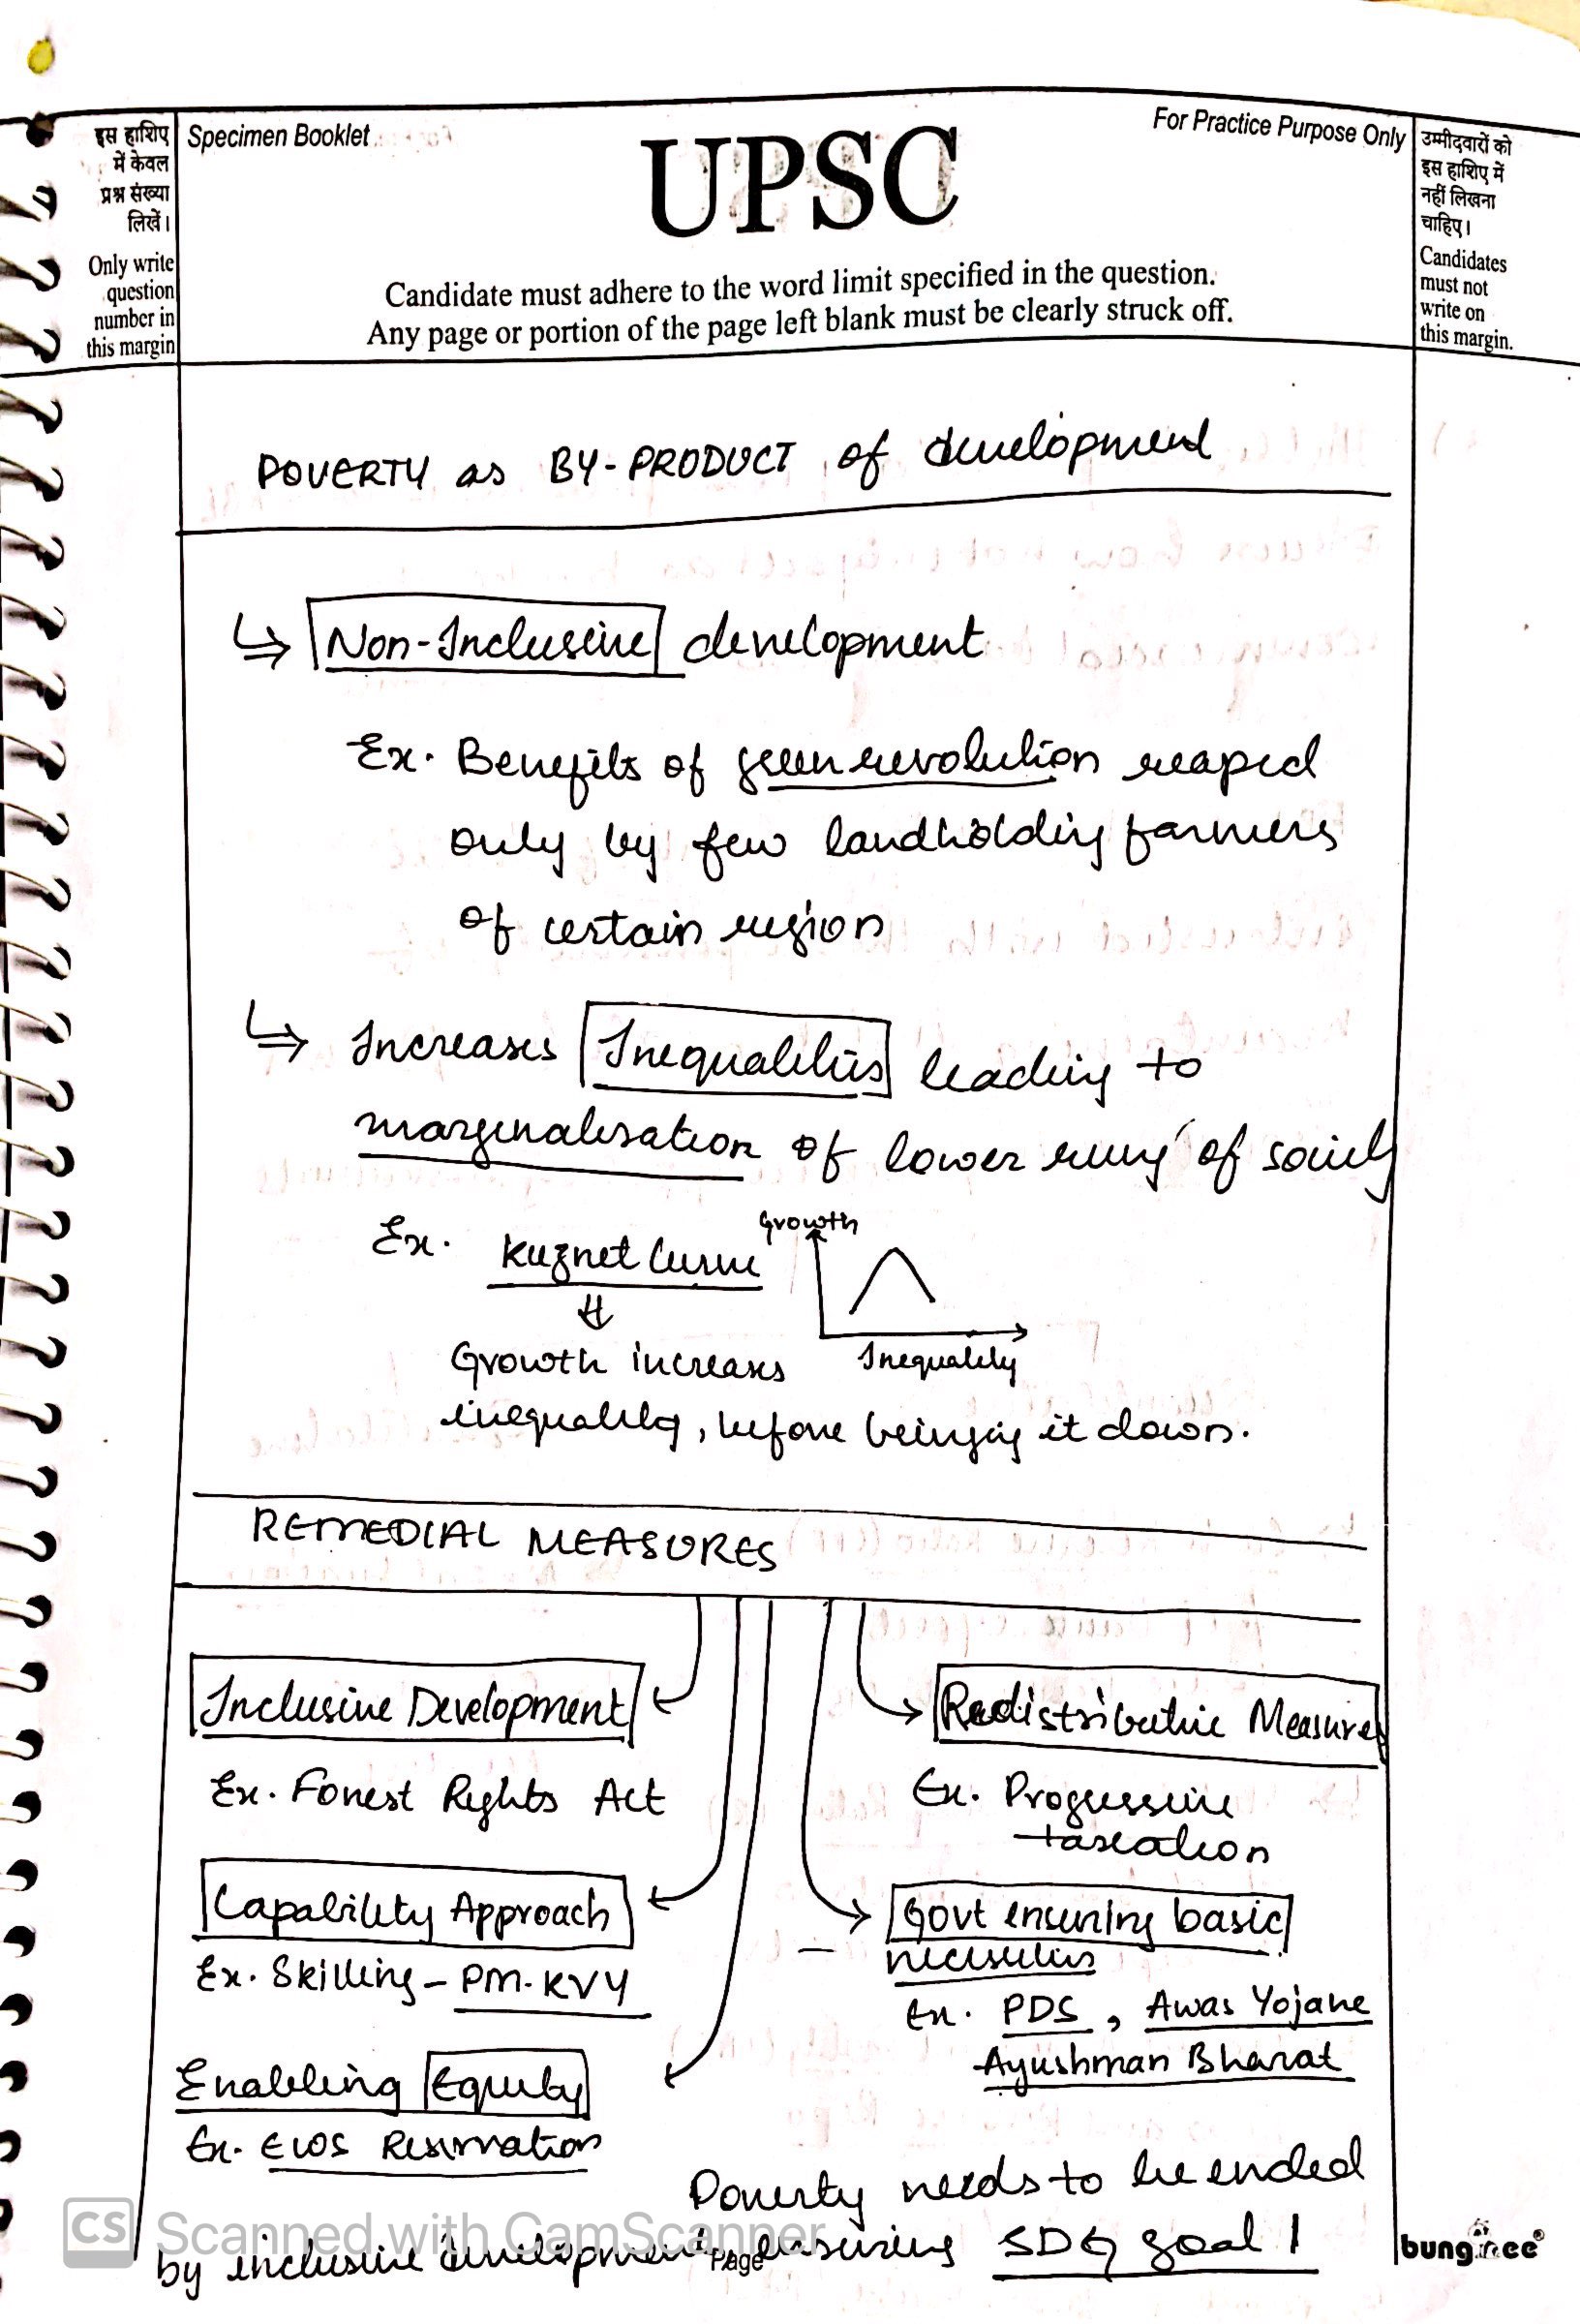 इस हाशिए
में केवल
प्रश्न संख्या
लिखें।
Only write
question
number in
this margin
Specimen Booklet
For Practice Purpose Only
UPSC
Candidate must adhere to the word limit specified in the question.
Any page or portion of the page left blank must be clearly struck off.
उम्मीदवारों को
इस हाशिए में
नहीं लिखना
चाहिए।
Candidates
must not
write on
this margin.
POVERTY as BY-PRODUCT of development
↳ Non-Inclusive development
Ex. Benefits of green revolution reaped
only by few landholding farmers
of certain region
↳ Increases Inequalities leading to
marginalisation of lower rung of society
Ex. Kuznet Curve
Growth
Inequality
Growth increases
inequality, before bringing it down.
REMEDIAL MEASURES
Inclusive Development
Ex. Forest Rights Act
Capability Approach
Ex. Skilling - PM-KVY
Enabling Equity
Ex. EWS Reservation
Redistributive Measures
Ex. Progressive
taxation
Govt ensuring basic
necessities
Ex. PDS, Awas Yojane
Ayushman Bharat
Poverty needs to be ended
by inclusive development, ensuring SDG goal 1
CS Scanned with CamScanner
Page